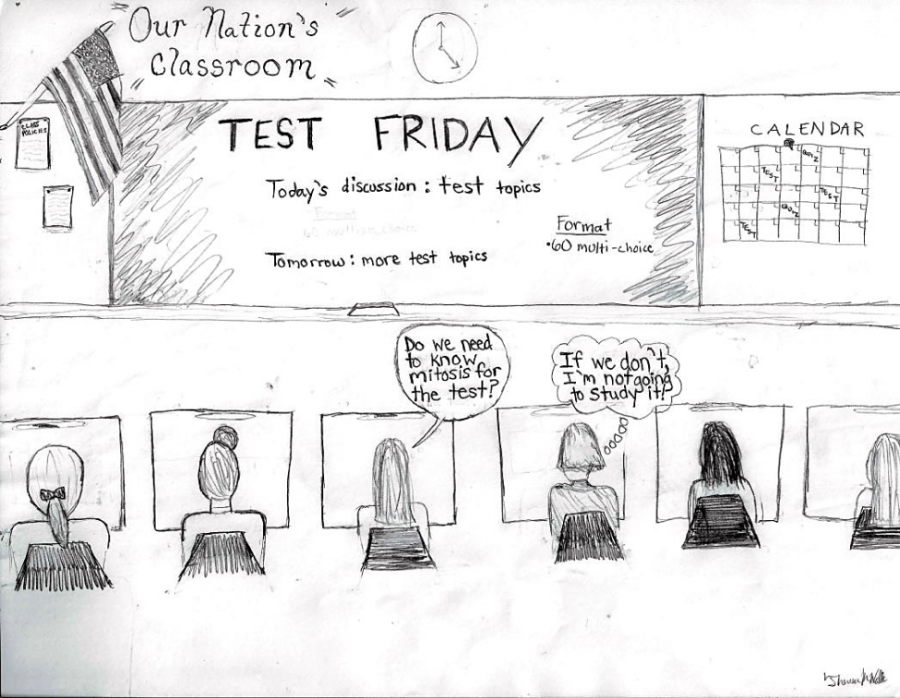 "Our Nation's
Classroom"
CLASS
POLICIES
TEST FRIDAY
Today's discussion: test topics
Format
60 multi-choice
Tomorrow: more test topics
Format
•60 multi-choice
CALENDAR
QUIZ
TEST
TEST
QUIZ
TEST
Do we need
to know
mitosis for
the test?
If we don't,
I'm not going
to study it!